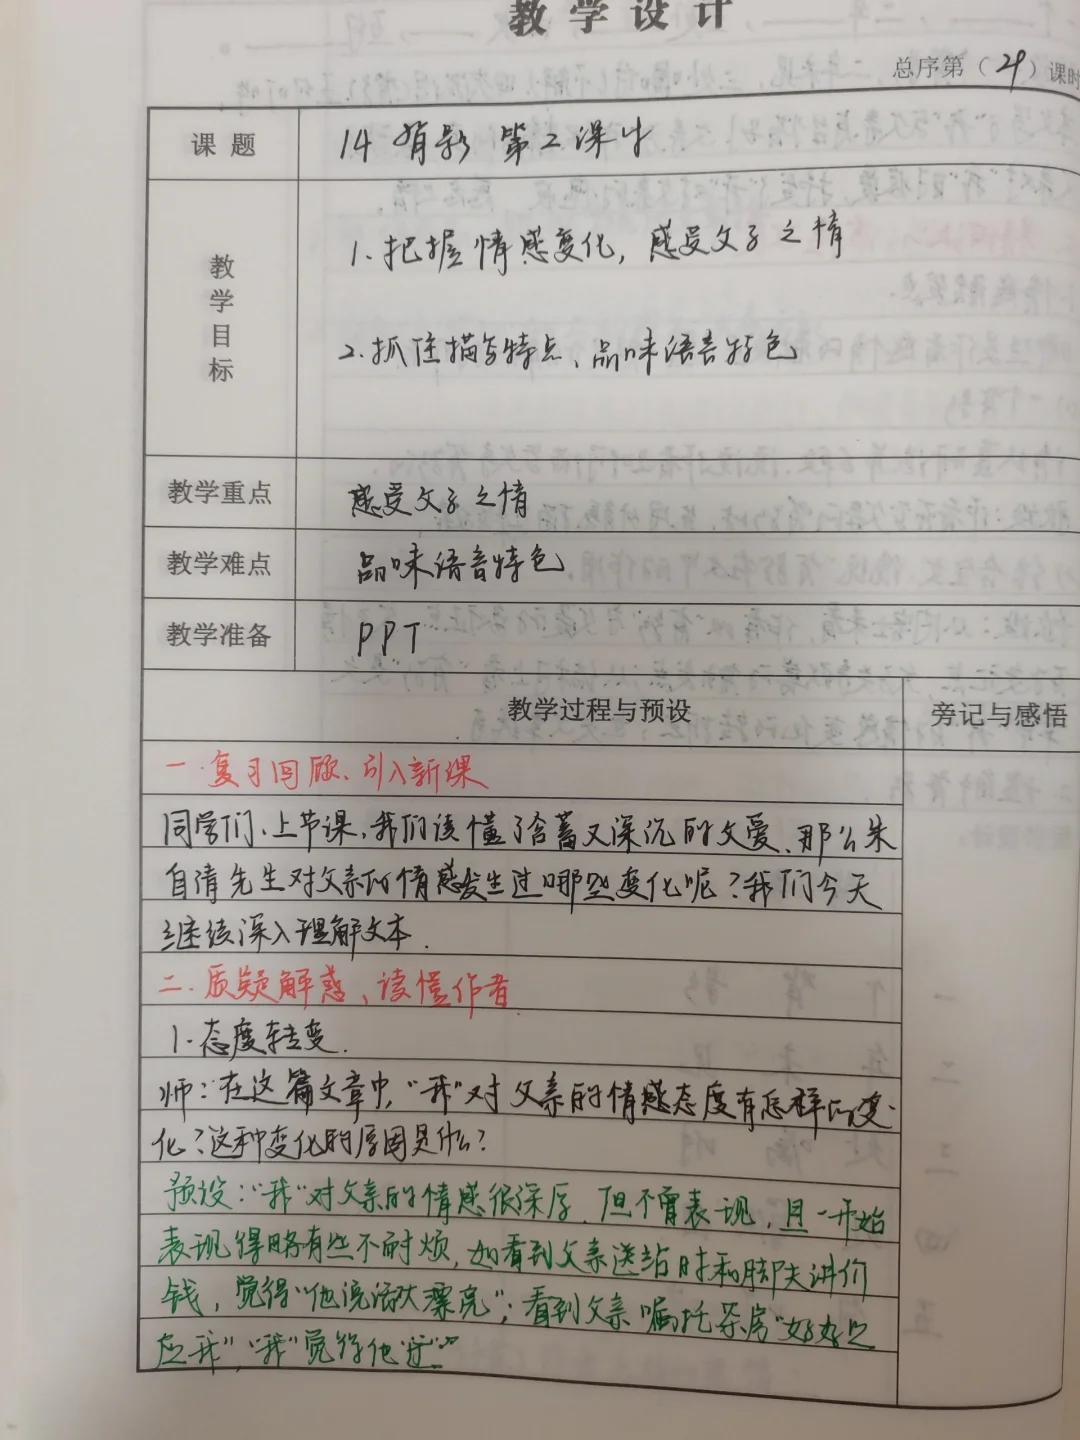 教学设计
总序第（21）课时
课题
14 背影 第二课时
教学目标
1.把握情感变化，感受父子之情
2.抓住描写特点、品味语言特色
教学重点
感受父子之情
教学难点
品味语言特色
教学准备
PPT
教学过程与预设
旁记与感悟
一.复习回顾、引入新课
同学们，上节课，我们读懂了含蓄又深沉的父爱、那么朱
自清先生对父亲的情感发生过哪些变化呢？我们今天
继续深入理解文本.
二.质疑解惑、读懂作者.
1.态度转变.
师：在这篇文章中，“我”对父亲的情感态度有怎样的变
化？这种变化的原因是什么？
预设：“我”对父亲的情感很深厚，但不曾表现，且一开始
表现得略有些不耐烦，如看到父亲送站时和脚夫讲价
钱，觉得“他说话不大漂亮”；看到父亲嘱托茶房“好好照
应我”，“我”觉得他“迂”